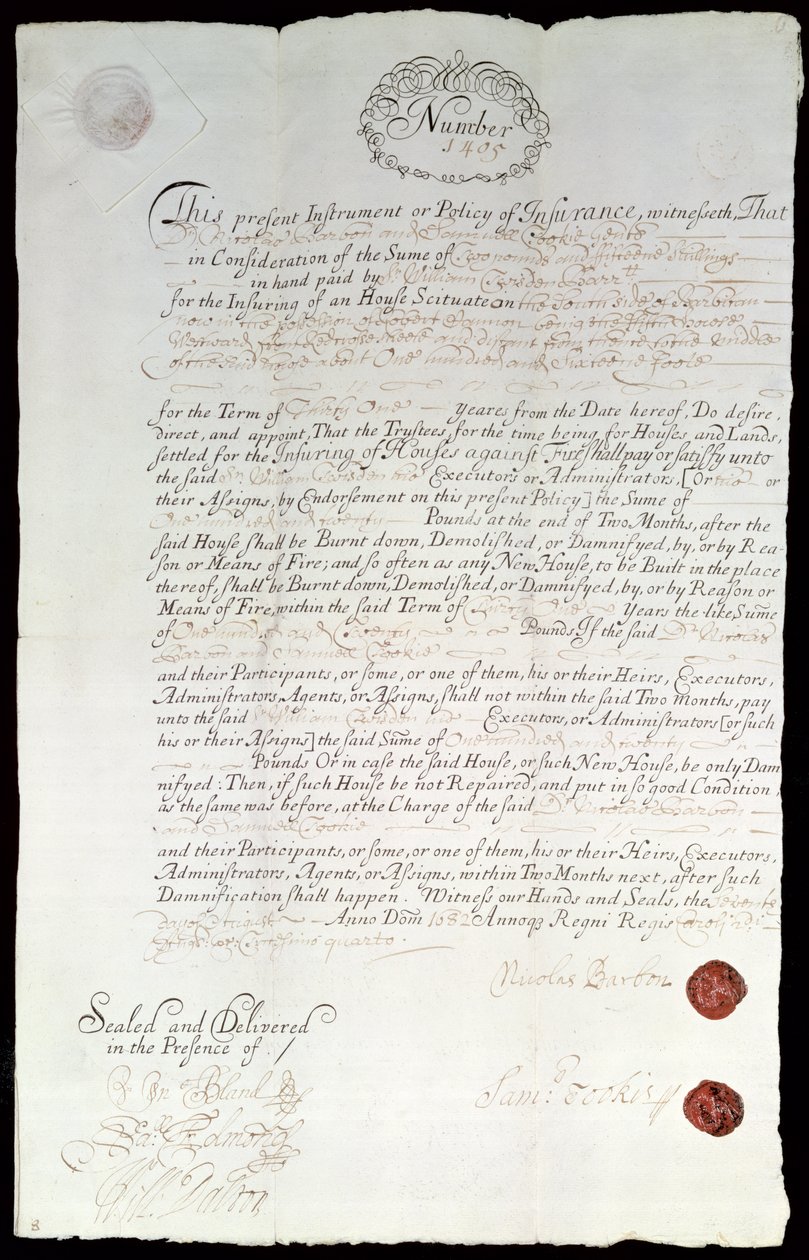 Number
1405
This present Instrument or Policy of Insurance, witnesseth, That
Dr. Nicolas Barbon and Samuell Tookie Gents
in Consideration of the Sume of Two pounds and fifteene Shillings
in hand paid by Sr. William Twisden Barrtt
for the Insuring of an House Scituate on the South side of Barbican
now in the possession of Robert Hannon being the fifth house
Westward from Redcrosse streete and distant from thence to the middle
of the said house about One hundred and Sixteene foote
for the Term of Thirty One Yeares from the Date hereof, Do desire,
direct, and appoint, That the Trustees, for the time being, for Houses, and Lands,
settled for the Insuring of Houses against Fire shall pay or satisfy unto
the said Sr. William Twisden his Executors or Administrators, [Or his or
their Assigns, by Endorsement on this present Policy] the Sume of
One hundred and twenty Pounds at the end of Two Months, after the
said House shall be Burnt down, Demolished, or Damnifyed, by, or by Rea-
son or Means of Fire; and so often as any New House, to be Built in the place
thereof, shall be Burnt down, Demolished, or Damnifyed, by, or by Reason or
Means of Fire, within the said Term of Thirty One Years the like Sume
of One hundred and Twenty Pounds If the said Dr. Nicolas
Barbon and Samuell Tookie
and their Participants, or some, or one of them, his or their Heirs, Executors,
Administrators, Agents, or Assigns, shall not within the said Two months, pay
unto the said Sr William Twisden his Executors, or Administrators [or such
his or their Assigns] the said Sume of One hundred and twenty
Pounds Or in case the said House, or such New House, be only Dam
nifyed: Then, if such House be not Repaired, and put in so good Condition,
as the same was before, at the Charge of the said Dr. Nicolas Barbon
and Samuell Tookie
and their Participants, or some, or one of them, his or their Heirs, Executors,
Administrators, Agents, or Assigns, within Two Months next, after such
Damnification shall happen. Witness our Hands and Seals, the Seventh
day of August Anno Dom 1682 Annoq3 Regni Regis Caroli 2di
Tricessimo quarto.
Nicolas Barbon
Sealed and Delivered
in the Presence of. /
Jn Bland
Sam: Tookie
Edmonds
Will: Dalton
8